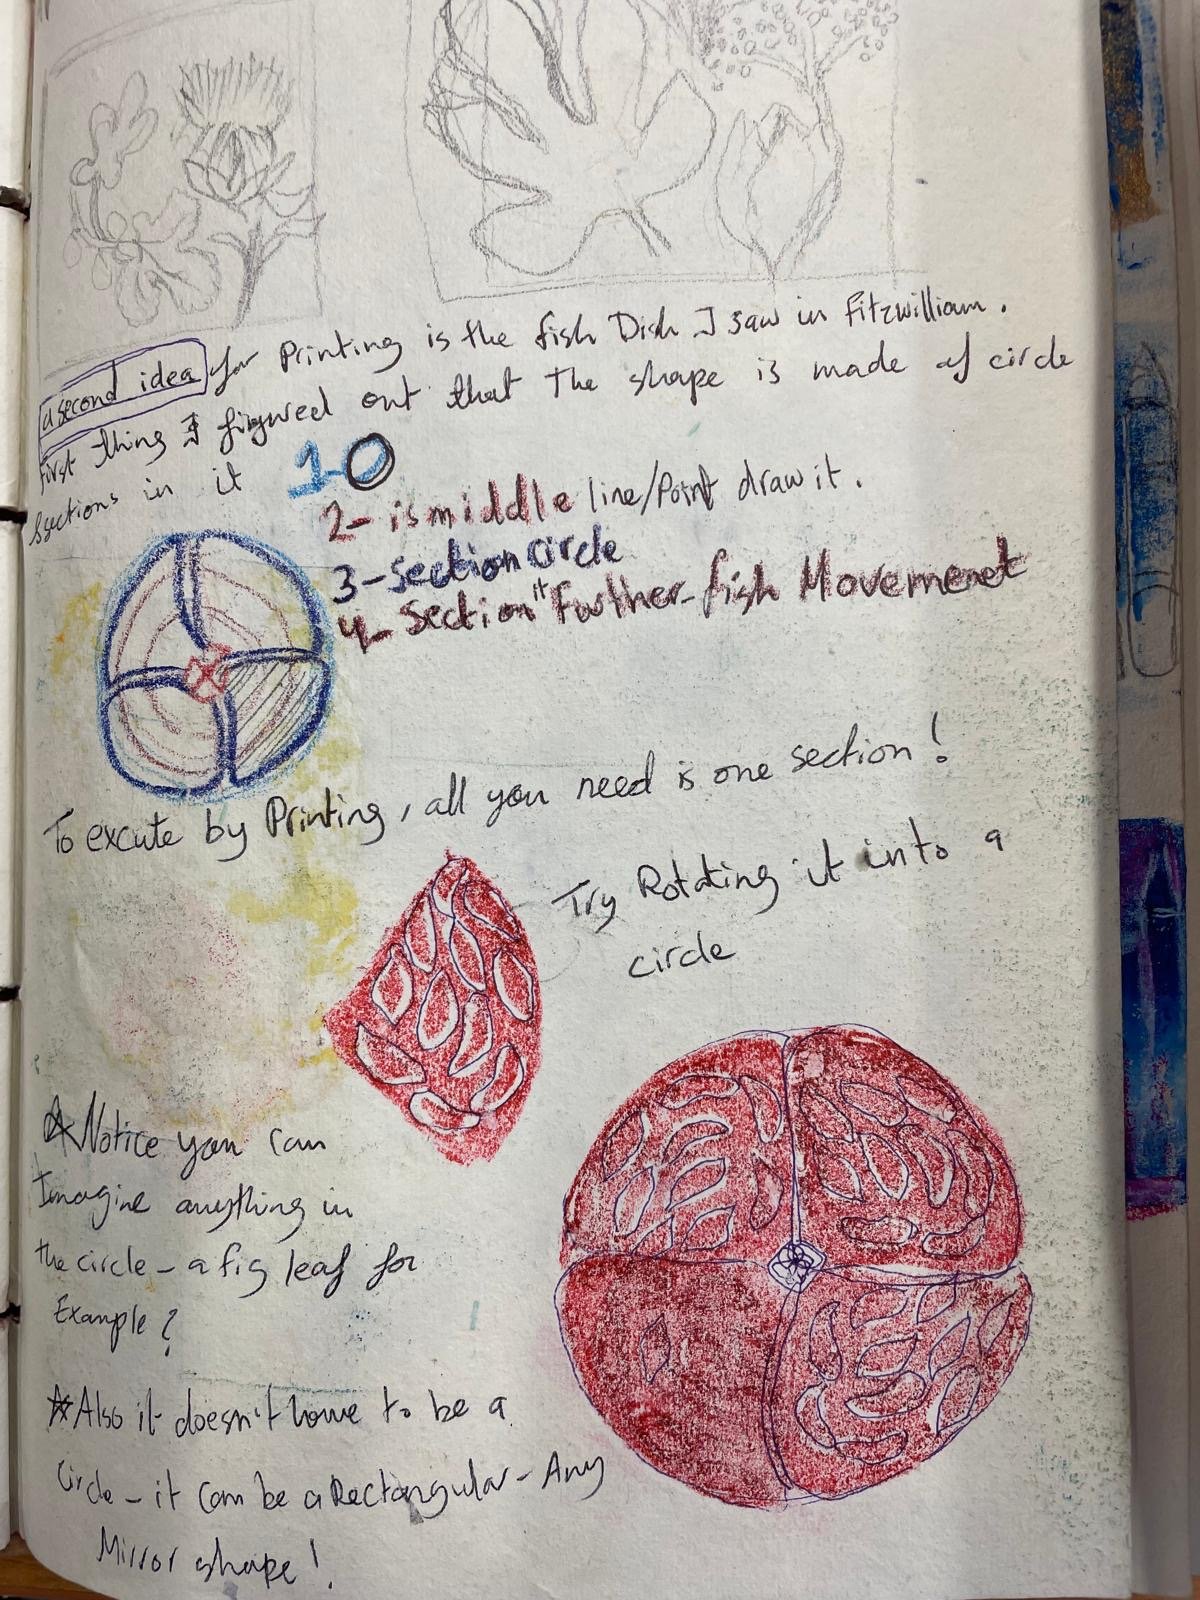 a second idea for Printing is the fish Dish I saw in Fitzwilliam.
First thing I figured out that the shape is made of circle
sections in it
1-O
2- is middle line/Point draw it.
3-section circle
4- section it Further-fish Movemenet
To excute by Printing, all you need is one section!
Try Rotating it into a
circle
Notice you can
Imagine anything in
the circle - a fig leaf for
Example?
Also it doesn't have to be a
Circle - it can be a Rectangular - Any
Mirror shape!